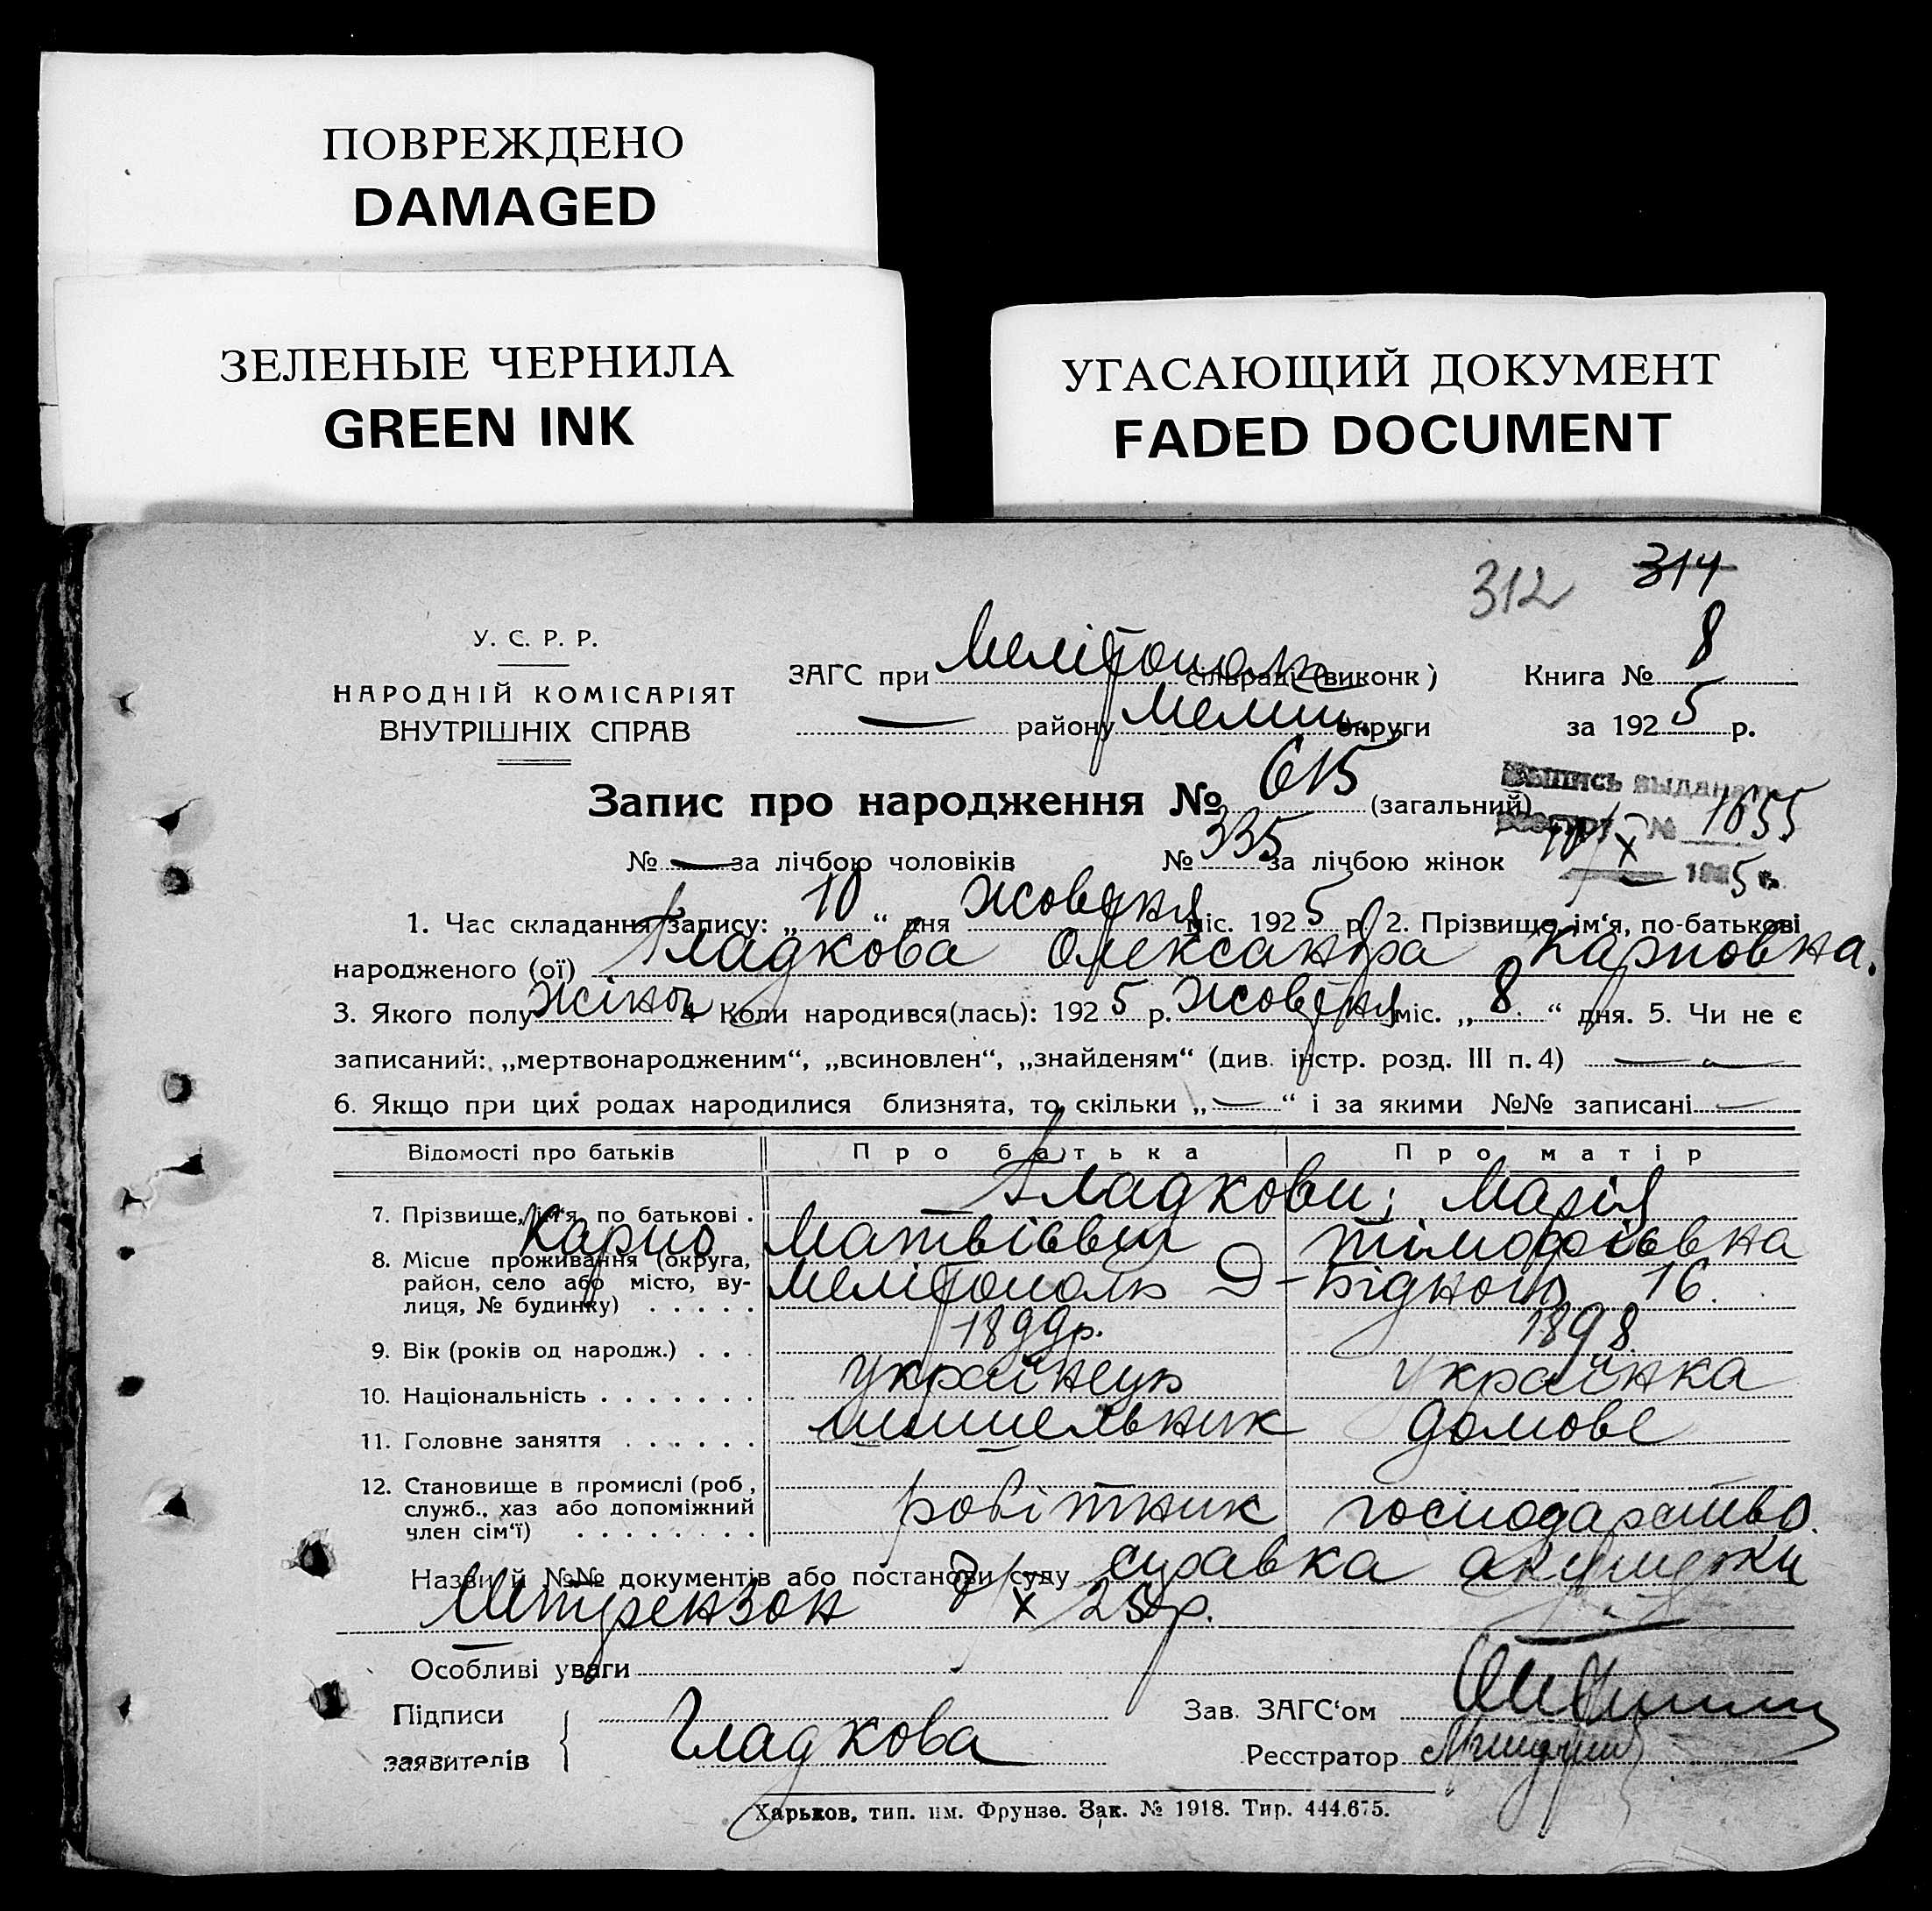 ПОВРЕЖДЕНО
DAMAGED
ЗЕЛЕНЫЕ ЧЕРНИЛА
GREEN INK
УГАСАЮЩИЙ ДОКУМЕНТ
FADED DOCUMENT
312 314
У. С. Р. Р.
НАРОДНІЙ КОМІСАРІЯТ
ВНУТРІШНІХ СПРАВ
ЗАГС при Мелітополь сільраді (виконк)
— району Мелит. округи
Книга № 8
за 1925 р.
Запис про народження № 615 (загальний)
№ — за лічбою чоловіків № 335 за лічбою жінок
выдана
№ 1655
10/X 1925 г.
1. Час складання запису: „10“ дня жовтня міс. 1925 р. 2. Прізвище, ім‘я, по-батькові
народженого (ої) Гладкова Олександра Карповна.
3. Якого полу жіноч 4 Коли народився(лась): 1925 р. жовтня міс. „8.“ дня. 5. Чи не є
записаний: „мертвонародженим“, „всиновлен“, „знайденям“ (див. інстр. розд. III п. 4) —
6. Якщо при цих родах народилися близнята, то скільки „—“ і за якими №№ записані —
Відомості про батьків Про батька Про матір
7. Прізвище, ім‘я, по батькові . Гладкови; Марія
Карпо Матвіевич Тімофієвна
8. Місце проживання (округа,
район, село або місто, ву-
лиця, № будинку) . . . . . Мелітополь Бідноти 16.
9. Вік (років од народж.) . . . 1899р. 1898
10. Національність . . . . . . . українець українка
11. Головне заняття . . . . . . домове
12. Становище в промислі (роб,
служб., хаз або допоміжний
член сім‘ї) . . . . . . . . робітник господарство.
Назви й №№ документів або постанови суду справка акушерки
Мітрензон 8/X 25р.
Особливі уваги
Підписи
заявителів Гладкова
Зав. ЗАГС‘ом
Реєстратор
Харьков, тип. им. Фрунзе. Зак. № 1918. Тир. 444.675.